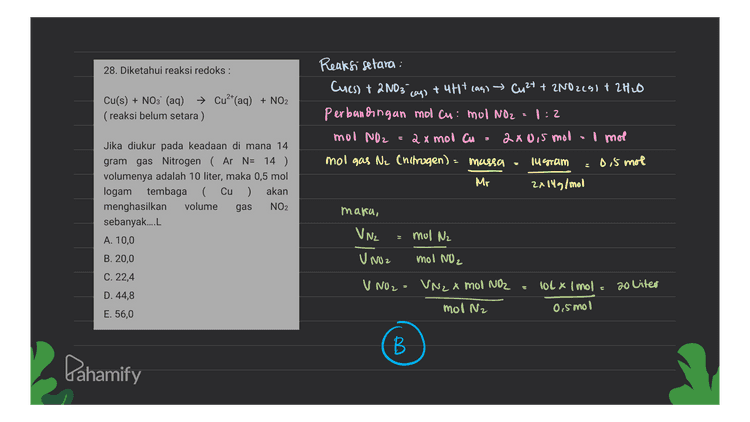 28. Diketahui reaksi redoks :
Cu(s) + NO₃⁻ (aq) → Cu²⁺(aq) + NO₂
( reaksi belum setara )
Jika diukur pada keadaan di mana 14
gram gas Nitrogen ( Ar N= 14 )
volumenya adalah 10 liter, maka 0,5 mol
logam tembaga ( Cu ) akan
menghasilkan volume gas NO₂
sebanyak....L
A. 10,0
B. 20,0
C. 22,4
D. 44,8
E. 56,0
Reaksi setara :
Cu(s) + 2NO₃⁻(aq) + 4H⁺(aq) → Cu²⁺ + 2NO₂(g) + 2H₂O
Perbandingan mol Cu : mol NO₂ = 1 : 2
mol NO₂ = 2 x mol Cu = 2 x 0,5 mol = 1 mol
mol gas N₂ (nitrogen) = massa = 14 gram = 0,5 mol
Mr 2x14g/mol
maka,
V N₂ = mol N₂
V NO₂ mol NO₂
V NO₂ = V N₂ x mol NO₂ = 10L x 1 mol = 20 Liter
mol N₂ 0,5 mol
B
Pahamify